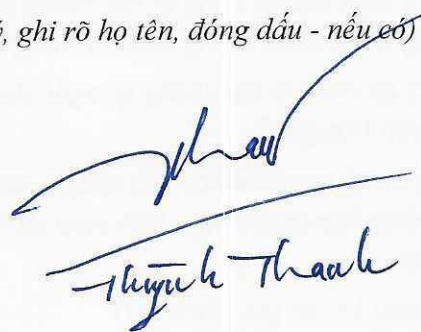 , ghi rõ họ tên, đóng dấu - nếu có)
Thanh
Thùynh Thanh